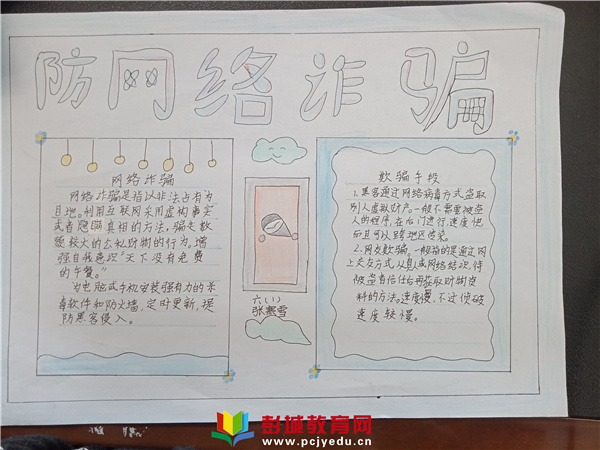 防网络诈骗
网络诈骗
网络诈骗是指以非法占有为
目地。利用互联网采用虚构事实
或者隐瞒真相的方法,骗走数
额较大的公私财物的行为,增
强自我意识"天下没有免费
的午餐。"
为电脑或手机安装强有力的杀
毒软件和防火墙,定时更新,提
防黑客侵入。
六(1)
张熙雪
欺骗手段
1.黑客通过网络病毒方式盗取
别人虚拟财产。一般不需要被盗
人的程序,在后门进行,速度快
而且可以跨地区传染。
2.网友欺骗。一般指的是通过网
上交友方式以真人或网络结识,待
被盗者信任后再获取财物资
料的方法。速度慢,不过侦破
速度较慢。
彭城教育网
www.pcjyedu.cn